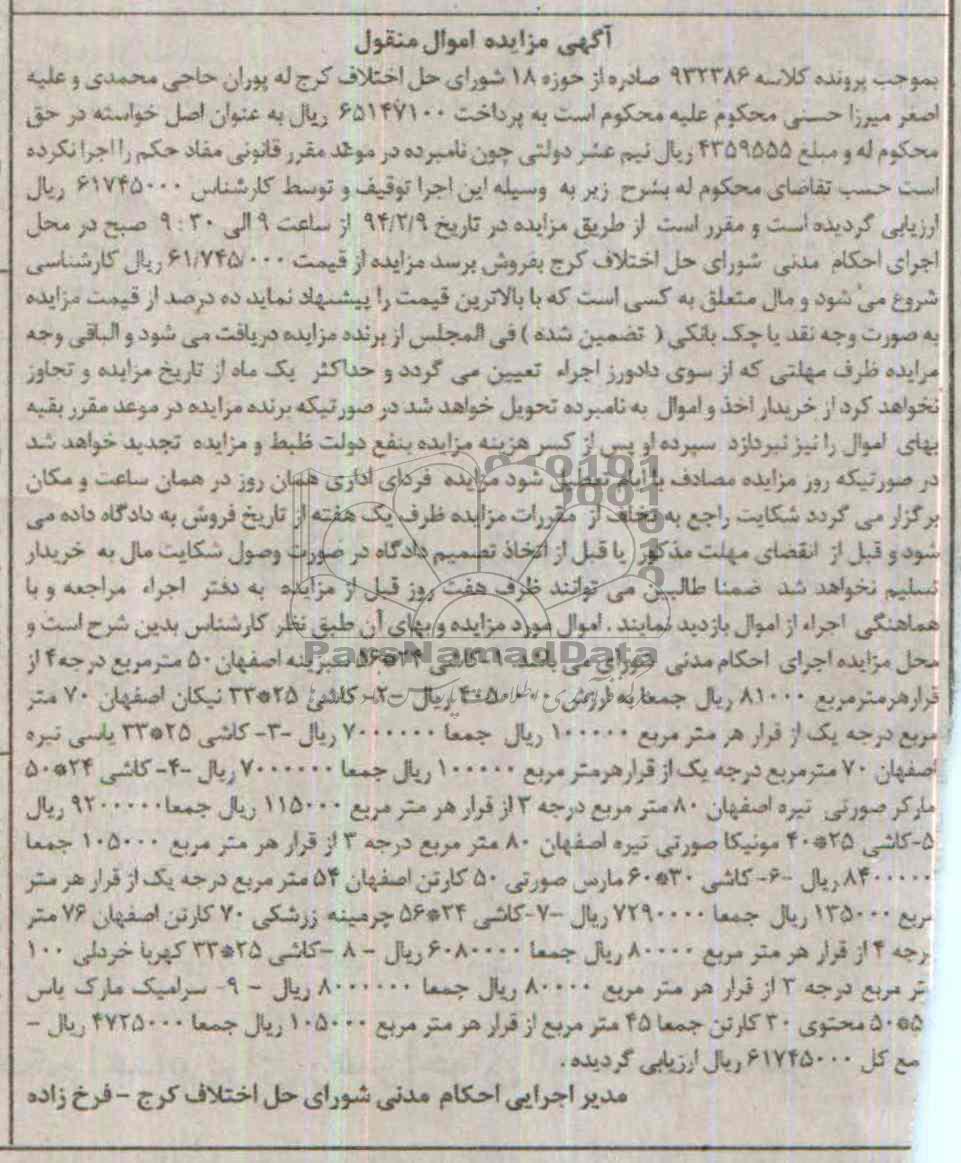 آگهی مزایده اموال منقول
بموجب پرونده کلاسه ۹۳۲۳۸۶ صادره از حوزه ۱۸ شورای حل اختلاف کرج له پوران حاجی محمدی و علیه
اصغر میرزا حسنی محکوم علیه محکوم است به پرداخت ۶۵۱۴۷۱۰۰ ریال به عنوان اصل خواسته در حق
محکوم له و مبلغ ۴۳۵۹۵۵۵ ریال نیم عشر دولتی چون نامبرده در موعد مقرر قانونی مفاد حکم را اجرا نکرده
است حسب تقاضای محکوم له بشرح زیر به وسیله این اجرا توقیف و توسط کارشناس ۶۱۷۴۵۰۰۰ ریال
ارزیابی گردیده است و مقرر است از طریق مزایده در تاریخ ۹۴/۲/۹ از ساعت ۹ الی ۹:۳۰ صبح در محل
اجرای احکام مدنی شورای حل اختلاف کرج بفروش برسد مزایده از قیمت ۶۱/۷۴۵/۰۰۰ ریال کارشناسی
شروع می شود و مال متعلق به کسی است که با بالاترین قیمت را پیشنهاد نماید ده درصد از قیمت مزایده
به صورت وجه نقد یا چک بانکی ( تضمین شده ) فی المجلس از برنده مزایده دریافت می شود و الباقی وجه
مزایده ظرف مهلتی که از سوی دادورز اجراء تعیین می گردد و حداکثر یک ماه از تاریخ مزایده و تجاوز
نخواهد کرد از خریدار اخذ و اموال به نامبرده تحویل خواهد شد در صورتیکه برنده مزایده در موعد مقرر بقیه
بهای اموال را نیز نپردازد سپرده او پس از کسر هزینه مزایده بنفع دولت ظبط و مزایده تجدید خواهد شد
در صورتیکه روز مزایده مصادف با ایام تعطیل شود مزایده فردای اداری همان روز در همان ساعت و مکان
برگزار می گردد شکایت راجع به تخلف از مقررات مزایده ظرف یک هفته از تاریخ فروش به دادگاه داده می
شود و قبل از انقضای مهلت مذکور یا قبل از اتخاذ تصمیم دادگاه در صورت وصول شکایت مال به خریدار
تسلیم نخواهد شد ضمنا طالبین می توانند ظرف هفت روز قبل از مزایده به دفتر اجراء مراجعه و با
هماهنگی اجراء از اموال بازدید نمایند . اموال مورد مزایده و بهای آن طبق نظر کارشناس بدین شرح است و
محل مزایده اجرای احکام مدنی شورای می باشد ۱-کاشی ۳۴*۵۶ سبزینه اصفهان ۵۰ مترمربع درجه۴ از
قرارهرمترمربع ۸۱۰۰۰ ریال جمعا به ارزش ریال -۲- کاشی ۲۵*۳۳ نیکان اصفهان ۷۰ متر
مربع درجه یک از قرار هر متر مربع ۱۰۰۰۰۰ ریال جمعا ۷۰۰۰۰۰۰ ریال -۳- کاشی ۲۵*۳۳ یاسی تیره
اصفهان ۷۰ مترمربع درجه یک از قرارهرمتر مربع ۱۰۰۰۰۰ ریال جمعا ۷۰۰۰۰۰۰ ریال -۴- کاشی ۲۴*۵۰
مارکر صورتی تیره اصفهان ۸۰ متر مربع درجه ۳ از قرار هر متر مربع ۱۱۵۰۰۰ ریال جمعا ۹۲۰۰۰۰۰ ریال
۵-کاشی ۲۵*۴۰ مونیکا صورتی تیره اصفهان ۸۰ متر مربع درجه ۳ از قرار هر متر مربع ۱۰۵۰۰۰ جمعا
۸۴۰۰۰۰۰ ریال -۶- کاشی ۳۰*۶۰ مارس صورتی ۵۰ کارتن اصفهان ۵۴ متر مربع درجه یک از قرار هر متر
مربع ۱۳۵۰۰۰ ریال جمعا ۷۲۹۰۰۰۰ ریال -۷-کاشی ۳۴*۵۶ چرمینه زرشکی ۷۰ کارتن اصفهان ۷۶ متر
رجه ۴ از قرار هر متر مربع ۸۰۰۰۰ ریال جمعا ۶۰۸۰۰۰۰ ریال - ۸ -کاشی ۲۵*۳۳ کهربا خردلی ۱۰۰
تر مربع درجه ۳ از قرار هر متر مربع ۸۰۰۰۰ ریال جمعا ۸۰۰۰۰۰۰ ریال - ۹- سرامیک مارک یاس
۵۰*۵ محتوی ۳۰ کارتن جمعا ۴۵ متر مربع از قرار هر متر مربع ۱۰۵۰۰۰ ریال جمعا ۴۷۲۵۰۰۰ ریال -
مع کل ۶۱۷۴۵۰۰۰ ریال ارزیابی گردیده .
مدیر اجرایی احکام مدنی شورای حل اختلاف کرج - فرخ زاده
ParsNamadData